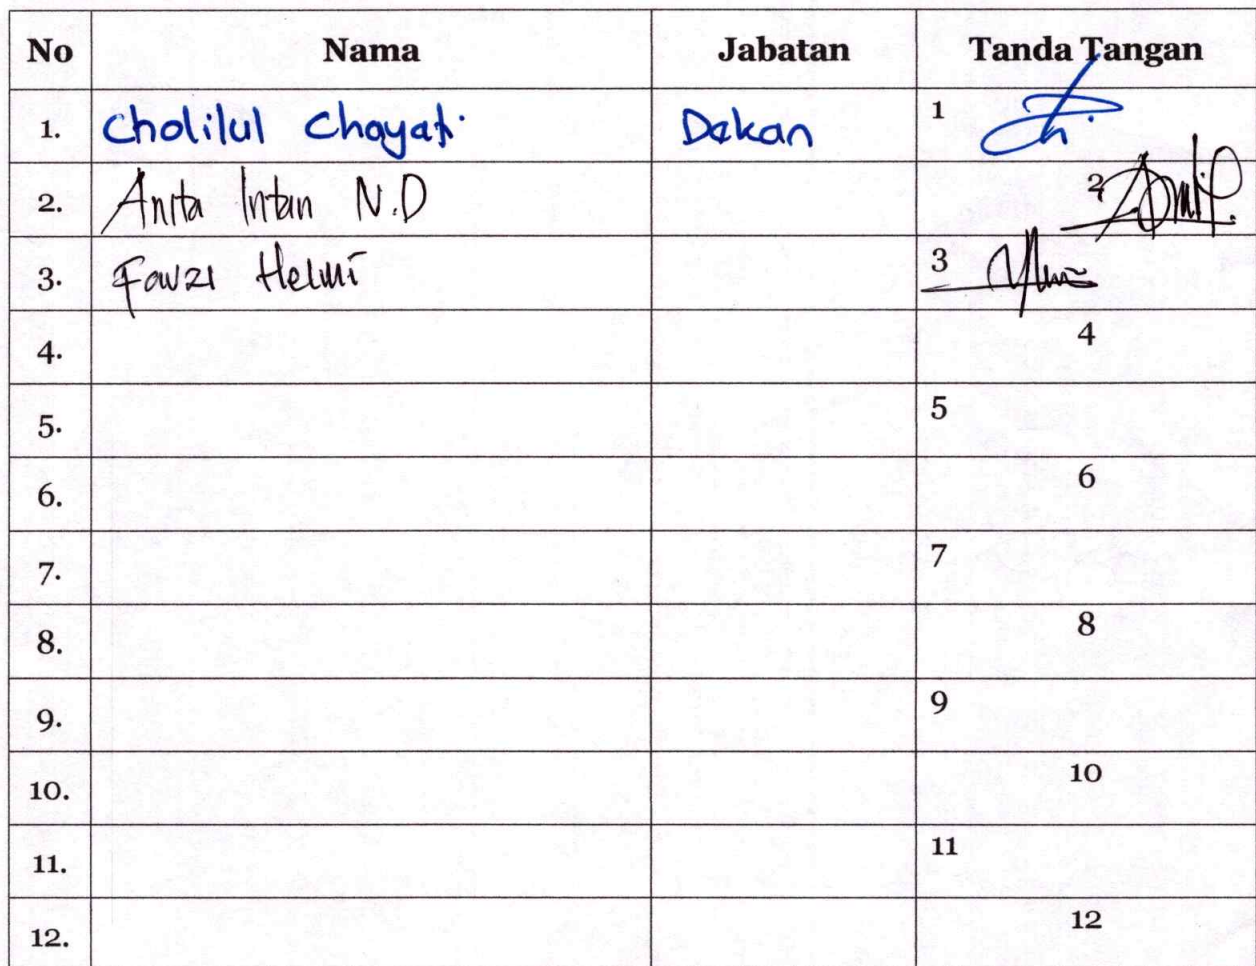 No Nama Jabatan Tanda Tangan
1. Cholilul Chayati Dekan 1
2. Anita Intan N.D 2
3. Fauzi Helmi 3
4. 4
5. 5
6. 6
7. 7
8. 8
9. 9
10. 10
11. 11
12. 12